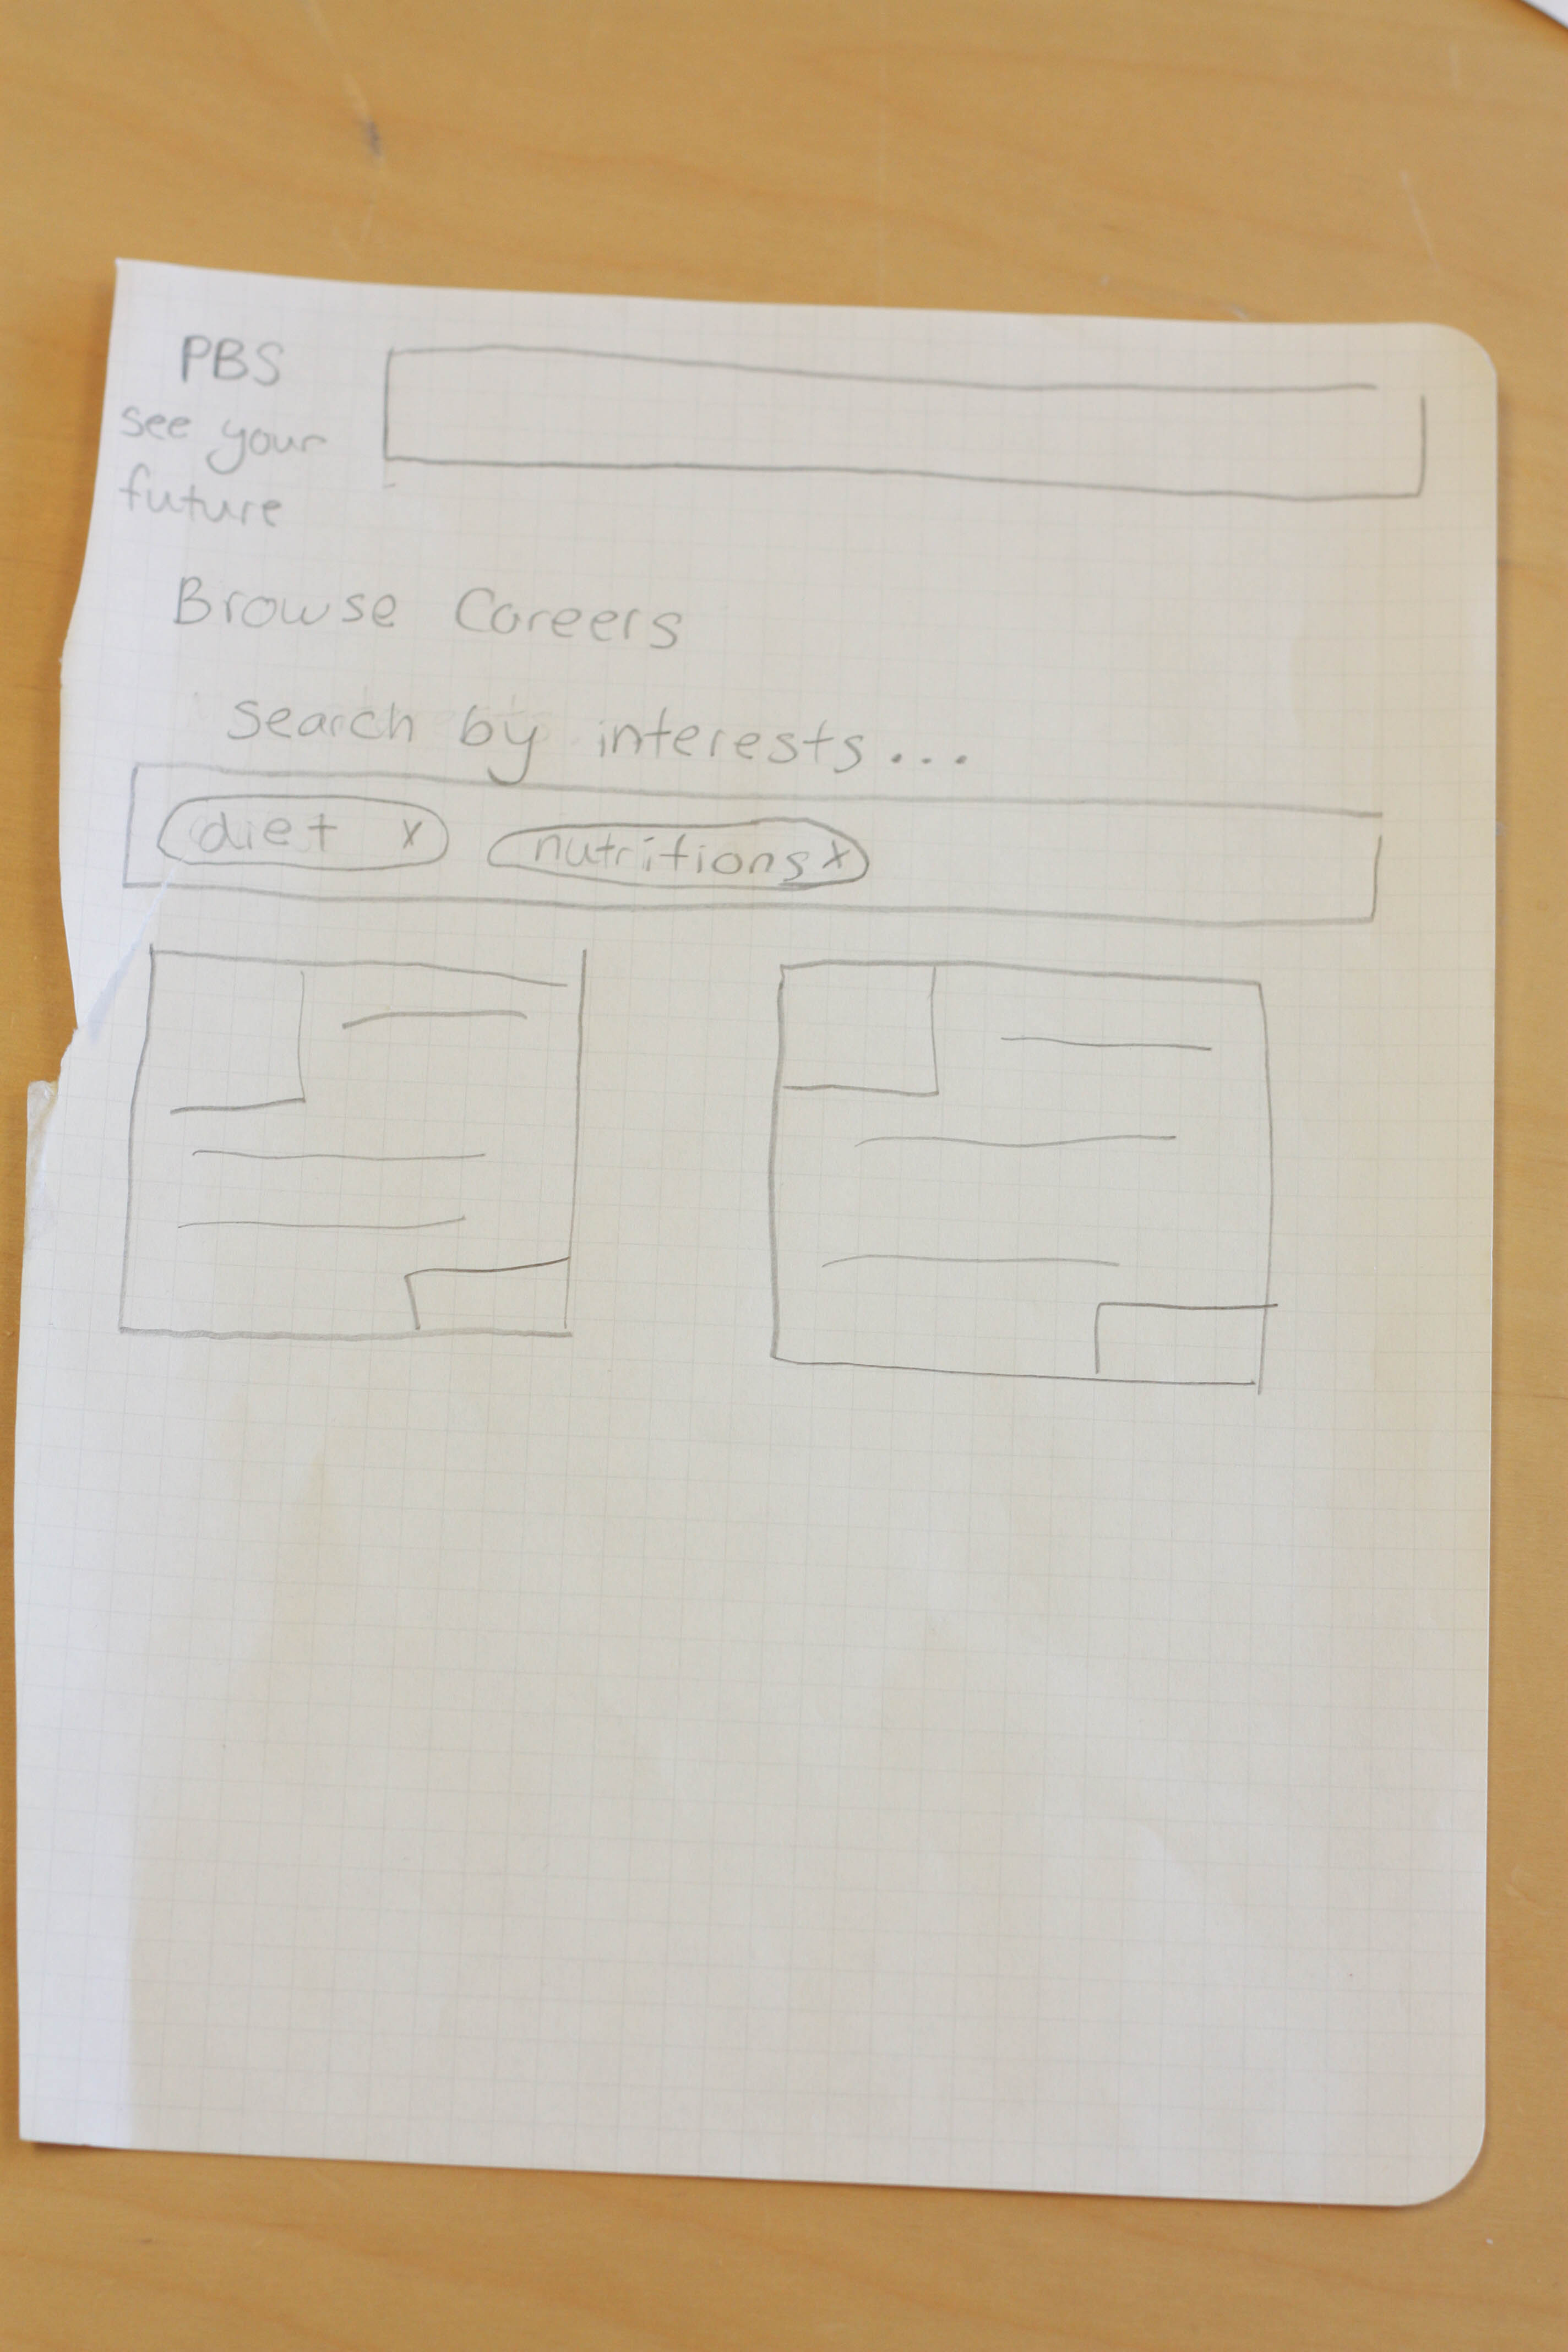 PBS
see your
future
Browse Careers
search by interests...
diet x
nutritions x